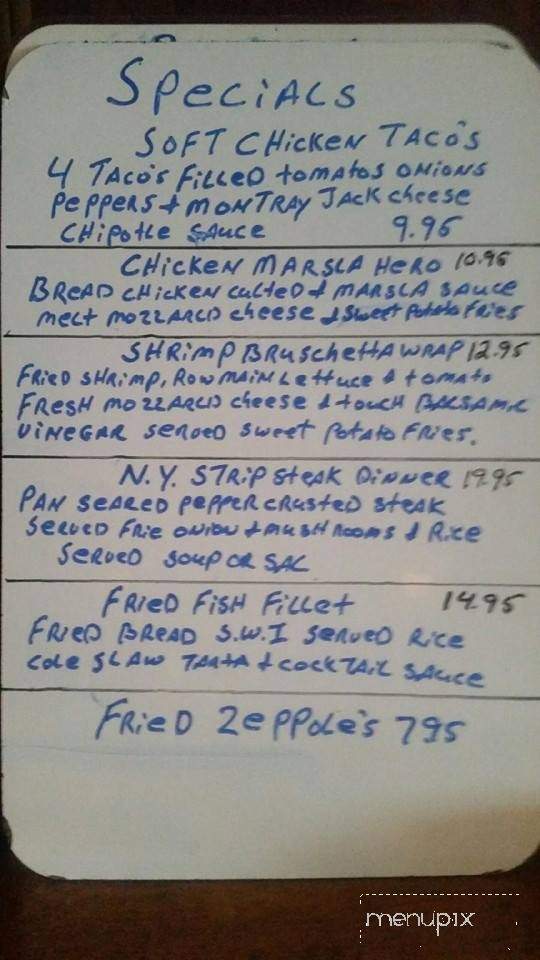 SPeCiALS
SOFT CHicKen TACO'S
4 TACO'S FiLLeD tomAtos onions
PePPeRS + MONTRAY JACK cheese
CHiPotle SAuce 9.95
CHicKeN MARSLA HeRO 10.95
BReAD cHicKen cutted + MARSLA SAuce
melt mozzARelD cheese + Sweet Potato FRies
SHRimp BRuschettA WRAP 12.95
FRieD SHRimp, RowmAin Lettuce + tomAto
FResH mozzARelD cheese + touch BALSAmic
VineGAR seRved sweet Potato FRies.
N.Y. STRiP steAK DinneR 19.95
PAN seARED PePPeR cRusted steAK
SeRved FRie onion + mushRooms + Rice
SeRveD SouP oR SAL
FRieD FisH FiLLet 14.95
FRieD BReAD S.W.I SeRved Rice
cole SLAW TARtA + cocKTAiL SAuce
FRieD ZePPole's 795
menupix